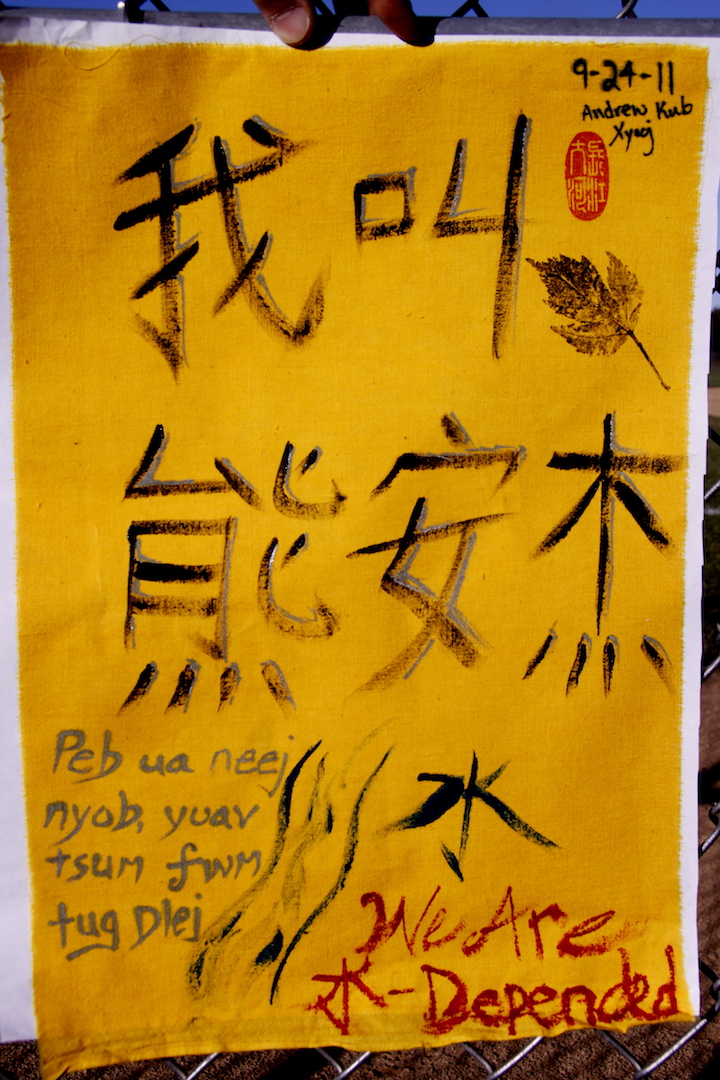 9-24-11
Andrew Kub
Xyooj
我叫
熊安杰
Peb ua neej
nyob, yuav
tsum fwm
tug Dlej
水
We Are
水-Depended